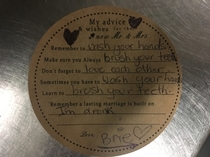 My advice
wishes for the
new Mr & Mrs
Remember to wash your hands
Make sure you Always brush your teeth
Don't forget to love each other
Sometimes you have to wash your hands
Learn to brush your teeth
Remember a lasting marriage is built on
I'm
Love Brie